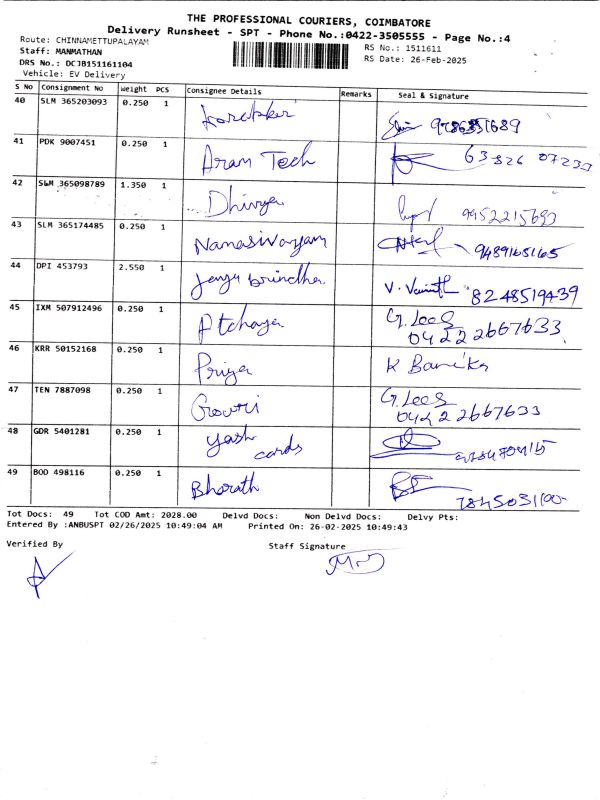 THE PROFESSIONAL COURIERS, COIMBATORE
Delivery Runsheet - SPT - Phone No.:0422-3505555 - Page No.:4
Route: CHINNAMETTUPALAYAM
RS No.: 1511611
Staff: MANMATHAN
RS Date: 26-Feb-2025
DRS No.: DCJB151161104
Vehicle: EV Delivery
S No Consignment No Weight PCS Consignee Details Remarks Seal & Signature
40 SLM 365203093 0.250 1
41 PDK 9007451 0.250 1 Aram Tech 63826 07233
42 SLM 365098789 1.350 1 Dhivya 9952215693
43 SLM 365174485 0.250 1 Namasivayam 9489165165
44 DPI 453793 2.550 1 8248519439
45 IXM 507912496 0.250 1 Atchaya G. Lees
0422 2667633
46 KRR 50152168 0.250 1 Priya K Banika
47 TEN 7887098 0.250 1 Gowri G. Lees
0422 2667633
48 GDR 5401281 0.250 1 Yash
cards
49 BOD 498116 0.250 1 Bharath
Tot Docs: 49 Tot COD Amt: 2028.00 Delvd Docs: Non Delvd Docs: Delvy Pts:
Entered By :ANBUSPT 02/26/2025 10:49:04 AM Printed On: 26-02-2025 10:49:43
Verified By Staff Signature